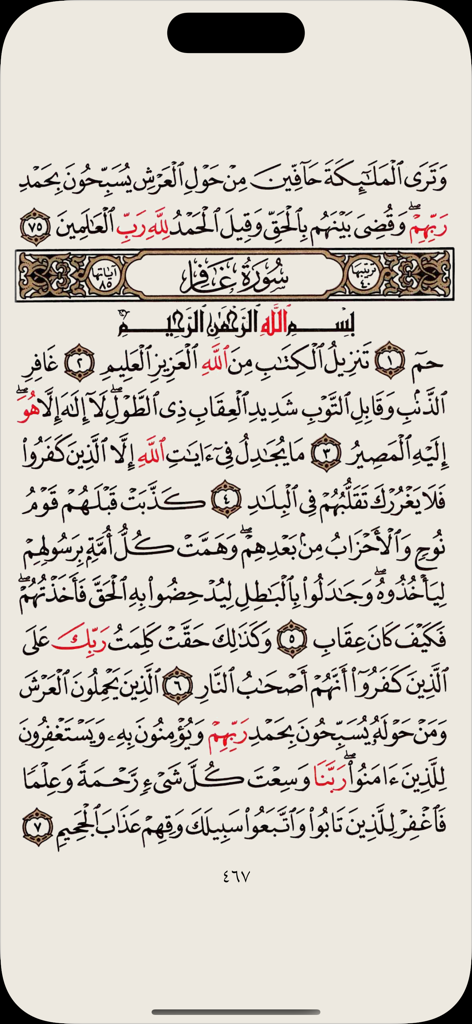 وَتَرَى ٱلْمَلَـٰٓئِكَةَ حَآفِّينَ مِنْ حَوْلِ ٱلْعَرْشِ يُسَبِّحُونَ بِحَمْدِ
رَبِّهِمْ ۖ وَقُضِىَ بَيْنَهُم بِٱلْحَقِّ وَقِيلَ ٱلْحَمْدُ لِلَّهِ رَبِّ ٱلْعَـٰلَمِينَ ٧٥
ترتيبها ٤٠ سُورَةُ غَافِرٍ آياتها ٨٥
بِسْمِ ٱللَّهِ ٱلرَّحْمَـٰنِ ٱلرَّحِيمِ
حمٓ ١ تَنزِيلُ ٱلْكِتَـٰبِ مِنَ ٱللَّهِ ٱلْعَزِيزِ ٱلْعَلِيمِ ٢ غَافِرِ
ٱلذَّنۢبِ وَقَابِلِ ٱلتَّوْبِ شَدِيدِ ٱلْعِقَابِ ذِى ٱلطَّوْلِ ۖ لَآ إِلَـٰهَ إِلَّا هُوَ ۖ
إِلَيْهِ ٱلْمَصِيرُ ٣ مَا يُجَـٰدِلُ فِىٓ ءَايَـٰتِ ٱللَّهِ إِلَّا ٱلَّذِينَ كَفَرُوا۟
فَلَا يَغْرُرْكَ تَقَلُّبُهُمْ فِى ٱلْبِلَـٰدِ ٤ كَذَّبَتْ قَبْلَهُمْ قَوْمُ
نُوحٍ وَٱلْأَحْزَابُ مِنۢ بَعْدِهِمْ ۖ وَهَمَّتْ كُلُّ أُمَّةٍۭ بِرَسُولِهِمْ
لِيَأْخُذُوهُ ۖ وَجَـٰدَلُوا۟ بِٱلْبَـٰطِلِ لِيُدْحِضُوا۟ بِهِ ٱلْحَقَّ فَأَخَذْتُهُمْ ۖ
فَكَيْفَ كَانَ عِقَابِ ٥ وَكَذَٰلِكَ حَقَّتْ كَلِمَتُ رَبِّكَ عَلَى
ٱلَّذِينَ كَفَرُوٓا۟ أَنَّهُمْ أَصْحَـٰبُ ٱلنَّارِ ٦ ٱلَّذِينَ يَحْمِلُونَ ٱلْعَرْشَ
وَمَنْ حَوْلَهُۥ يُسَبِّحُونَ بِحَمْدِ رَبِّهِمْ وَيُؤْمِنُونَ بِهِۦ وَيَسْتَغْفِرُونَ
لِلَّذِينَ ءَامَنُوا۟ ۖ رَبَّنَا وَسِعْتَ كُلَّ شَىْءٍ رَّحْمَةً وَعِلْمًا
فَٱغْفِرْ لِلَّذِينَ تَابُوا۟ وَٱتَّبَعُوا۟ سَبِيلَكَ وَقِهِمْ عَذَابَ ٱلْجَحِيمِ ٧
٤٦٧